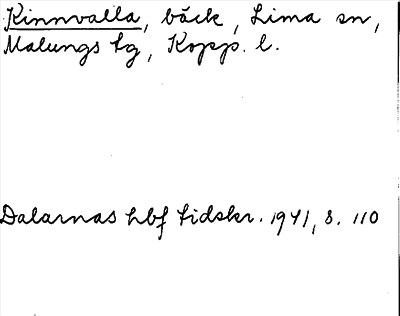 Kinnvalla, bäck, Lima sn,
Malungs tg, Kopp. l.
Dalarnas hbf tidskr. 1941, s. 110